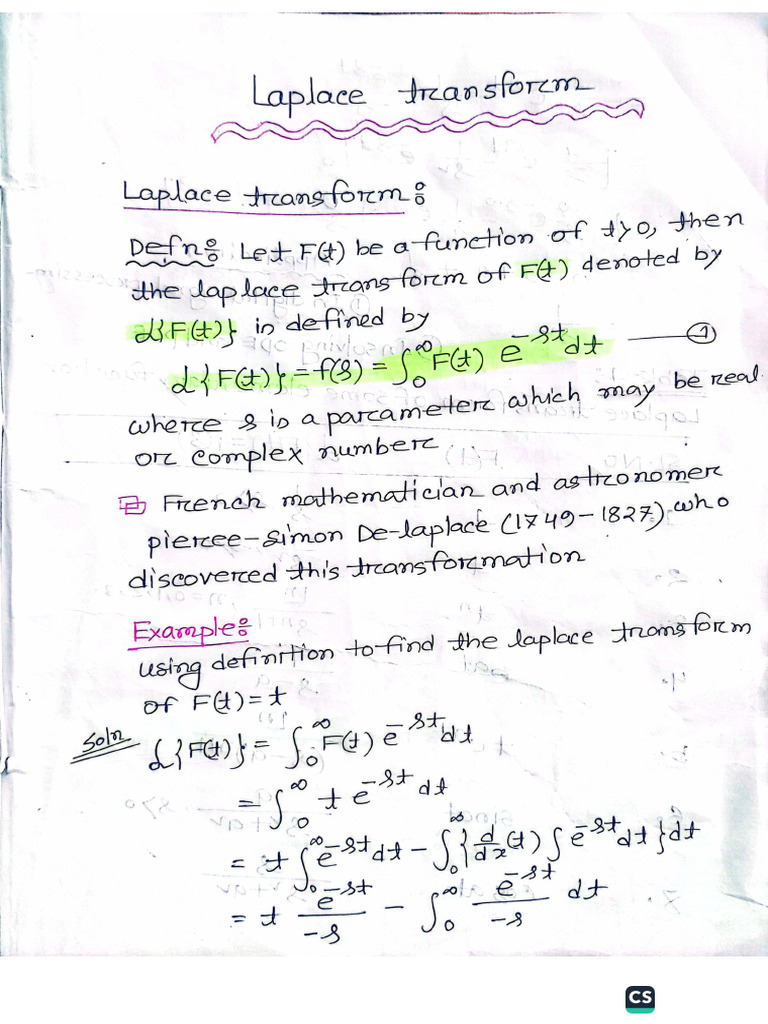 Laplace transform
Laplace transform:
Defn: Let F(t) be a function of t>0, then
the laplace transform of F(t) denoted by
ℒ{F(t)} is defined by
ℒ{F(t)} = f(s) = ∫₀^∞ F(t) e^{-st} dt —— ①
where s is a parameter which may be real
or complex number
French mathematician and astronomer
pierre-simon De-laplace (1749-1827) who
discovered this transformation
Example:
using definition to find the laplace transform
of F(t) = t
Soln ℒ{F(t)} = ∫₀^∞ F(t) e^{-st} dt
= ∫₀^∞ t e^{-st} dt
= t ∫₀^∞ e^{-st} dt - ∫₀^∞ {d/dx (t) ∫ e^{-st} dt} dt
= t e^{-st}/-s - ∫₀^∞ e^{-st}/-s dt
CS